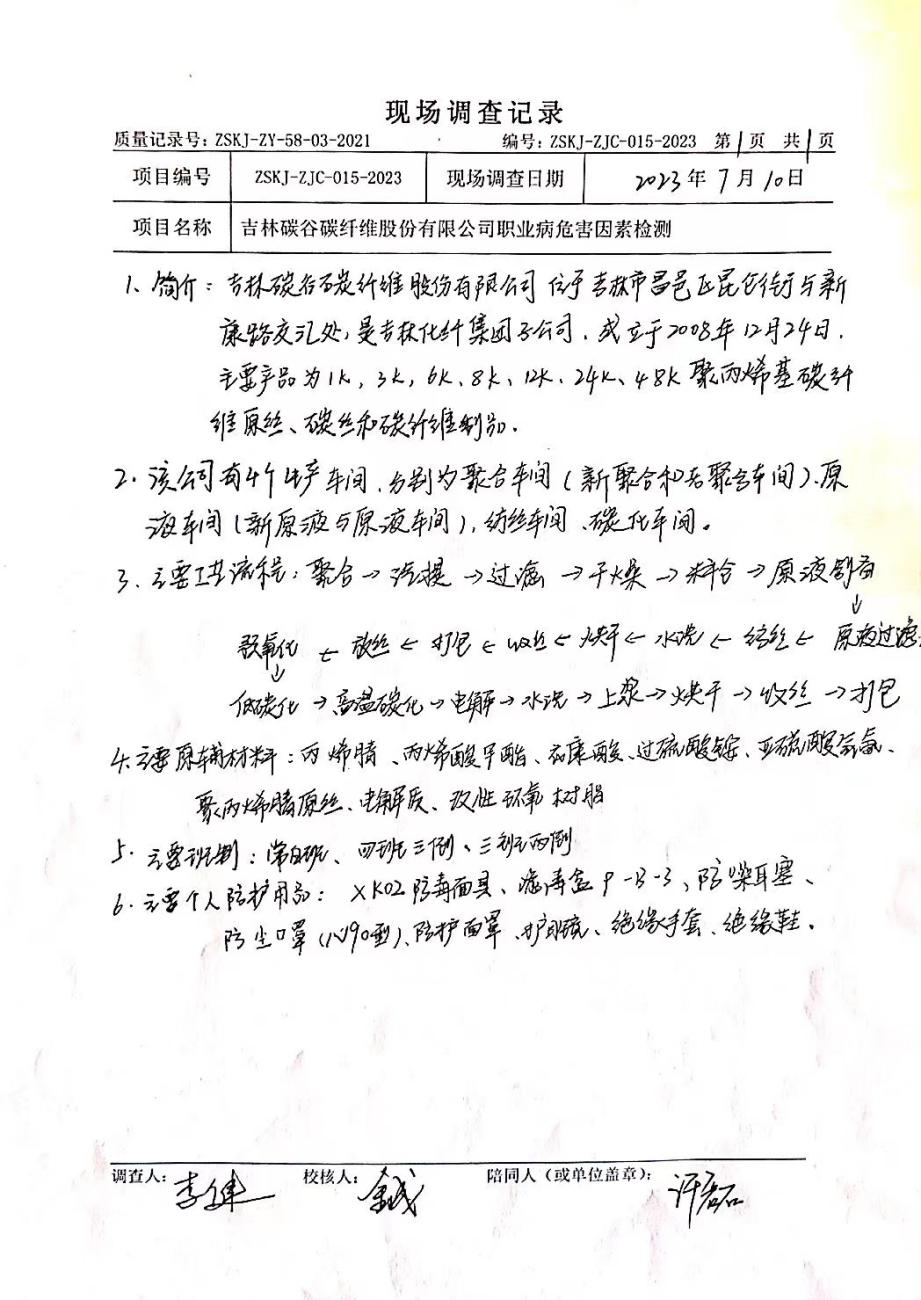 现场调查记录
质量记录号：ZSKJ-ZY-58-03-2021 编号：ZSKJ-ZJC-015-2023 第1页 共1页
项目编号 ZSKJ-ZJC-015-2023 现场调查日期 2023年7月10日
项目名称 吉林碳谷碳纤维股份有限公司职业病危害因素检测
1、简介：吉林碳谷碳纤维股份有限公司位于吉林市昌邑区昆仑街与新
康路交汇处，是吉林化纤集团子公司，成立于2008年12月24日．
主要产品为1k，3k，6k、8k、12k、24k、48k聚丙烯基碳纤
维原丝、碳丝和碳纤维制品．
2．该公司有4个生产车间，分别为聚合车间（新聚合和老聚合车间）、原
液车间（新原液与原液车间），纺丝车间、碳化车间。
3．主要工艺流程：聚合→汽提→过滤→干燥→料仓→原液制备
↓
预氧化←放丝←打包←收丝←烘干←水洗←纺丝←原液过滤
↓
低碳化→高温碳化→电解→水洗→上浆→烘干→收丝→打包
4．主要原辅材料：丙烯腈、丙烯酸甲酯、衣康酸、过硫酸铵、亚硫酸氢氨、
聚丙烯腈原丝、电解质、改性环氧树脂
5．主要班制：常白班、四班三倒、三班两倒
6．主要个人防护用品：XK02防毒面具、滤毒盒P-B-3、防噪耳塞、
防尘口罩（N90型）、防护面罩、护目镜、绝缘手套、绝缘鞋。
调查人：李健 校核人： 陪同人（或单位盖章）：许磊